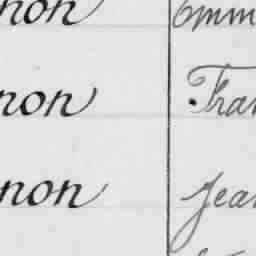 non Emm
non Fran
non Jean